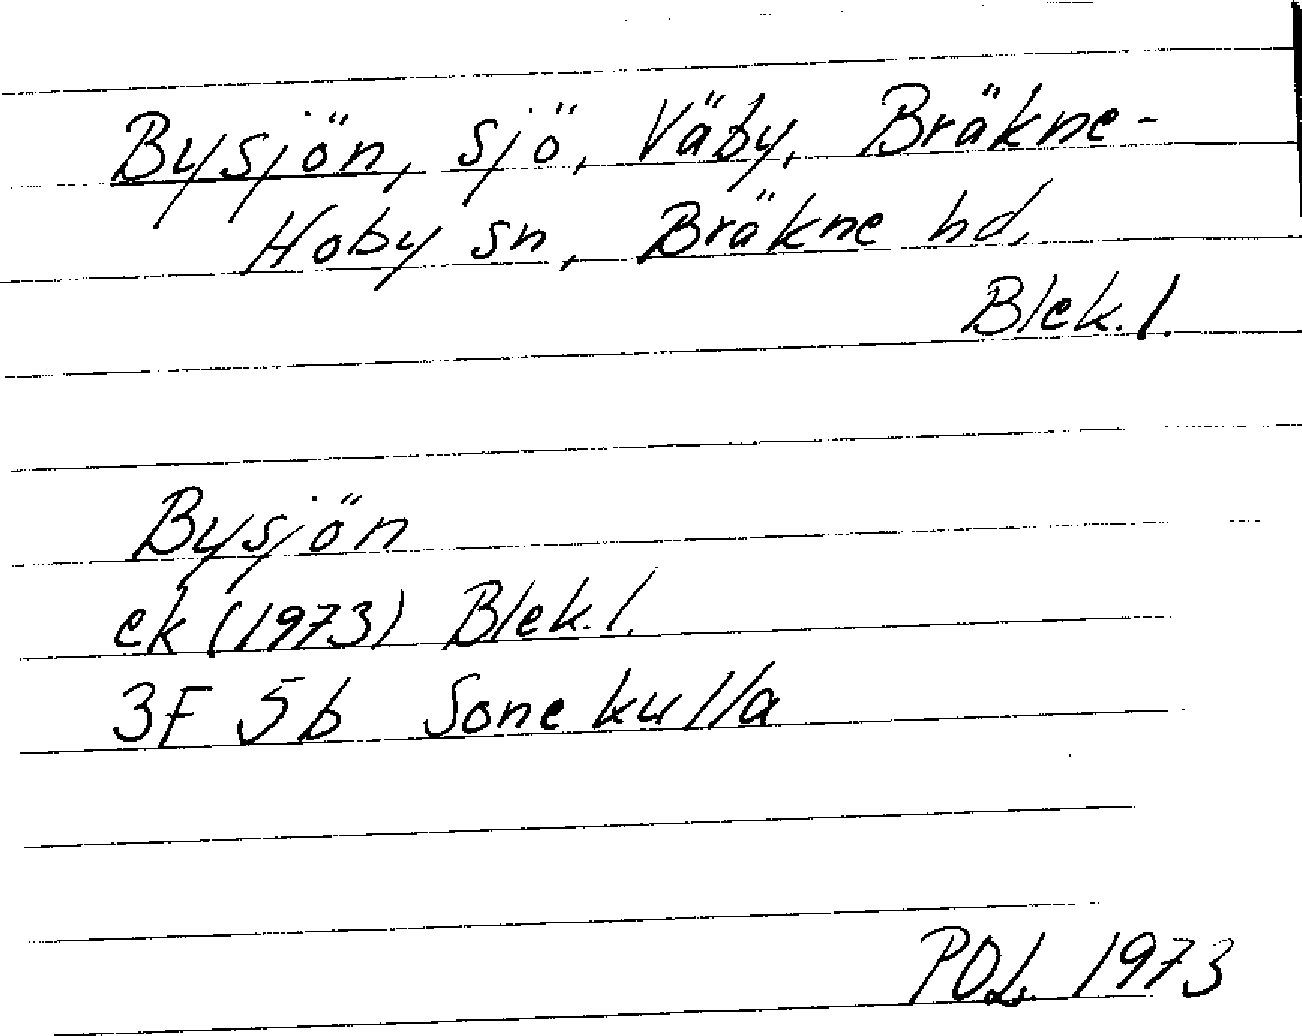 Bysjön, sjö, Väby, Bräkne-
Hoby sn, Bräkne hd,
Blek. l.
Bysjön
ek (1973) Blek. l.
3F 5b Sonekulla
POL 1973